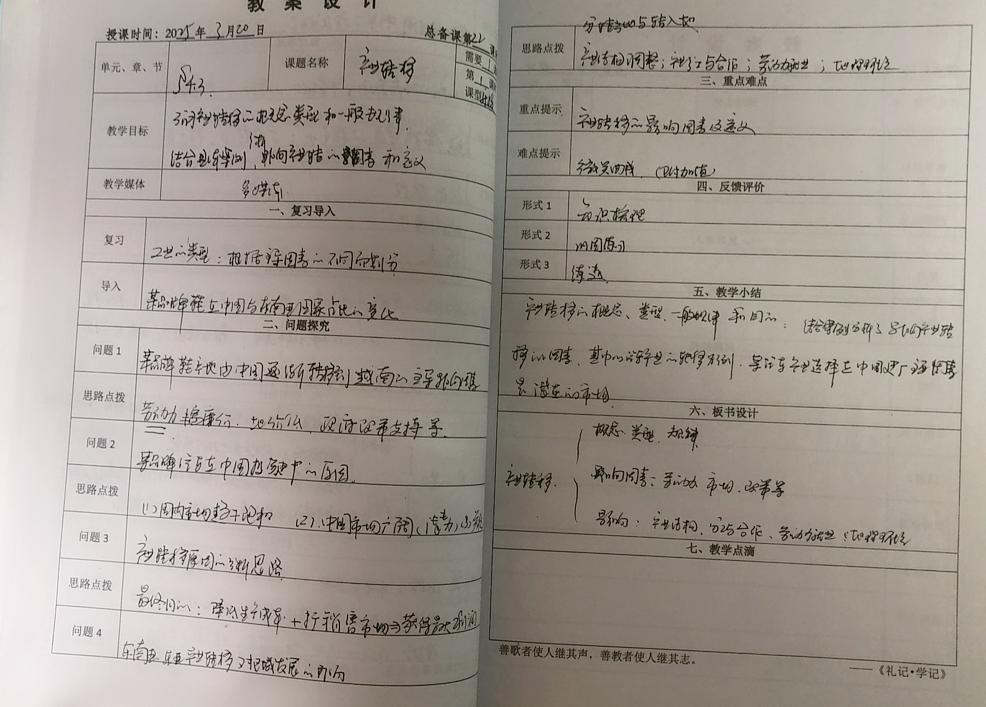 教案设计
授课时间：2025年3月20日 总备课第22课
单元、章、节 §4.3 课题名称 产业转移 需要1
第1
课型
教学目标 了解产业转移的概念类型和一般规律.
结合具体案例，分析影响产业转移的因素和意义
教学媒体 多媒体
一、复习导入
复习 工业的类型：根据主导因素的不同而划分
导入 某品牌鞋在中国与东南亚国家占比的变化
二、问题探究
问题1 某品牌鞋产地由中国逐渐转移到越南的主要影响因素
思路点拨 劳动力 丰富廉价. 地价低. 政府政策支持等.
问题2 某品牌汽车在中国投资建厂的原因
思路点拨 (1)国内市场趋于饱和 (2)中国市场广阔，(潜力)
问题3 产业转移原因的分析思路
思路点拨 最终目的：降低生产成本+打开销售市场⇒获得最大利润
问题4 东南亚、东亚产业转移对区域发展的影响
分转出地与转入地
思路点拨 产业结构调整；产业分工与合作；劳动力就业；地理环境
三、重点难点
重点提示 产业转移的影响因素及意义
难点提示 微笑曲线 (附加值)
四、反馈评价
形式1 知识梳理
形式2 巩固练习
形式3 练透
五、教学小结
产业转移的概念、类型、一般规律 和目的： 结合案例分析了各地的产业转
移的因素，
潜在的市场
六、板书设计
概念 类型 规律
产业转移 影响因素：劳动力 市场、政策等
影响：产业结构、分工与合作、劳动力就业、地理环境
七、教学点滴
善歌者使人继其声，善教者使人继其志。
——《礼记•学记》